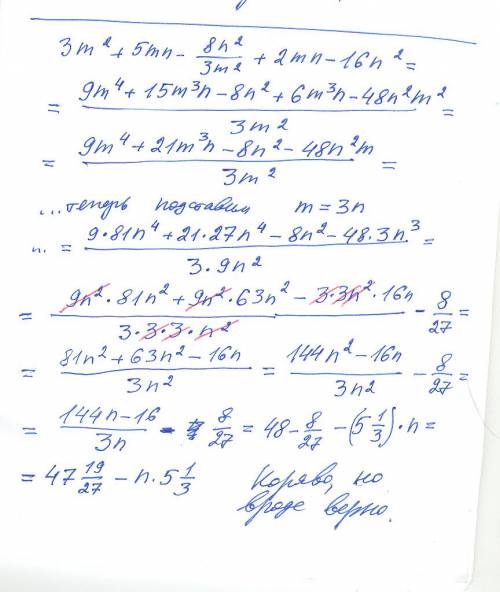 3m² + 5mn - 8n²/3m² + 2mn - 16n² =
= (9m⁴ + 15m³n - 8n² + 6m³n - 48n²m²)/3m² =
= (9m⁴ + 21m³n - 8n² - 48n²m)/3m² =
...теперь подставим m = 3n
n. = (9·81n⁴ + 21·27n⁴ - 8n² - 48·3n³)/3·9n² =
= (9n²·81n² + 9n²·63n² - 3·3n²·16n)/3·3·3·n² - 8/27 =
= (81n² + 63n² - 16n)/3n² = (144n² - 16n)/3n² - 8/27 =
= (144n - 16)/3n - 8/27 = 48 - 8/27 - (5 1/3)·n =
= 47 19/27 - n·5 1/3 Коряво, но
вроде верно.